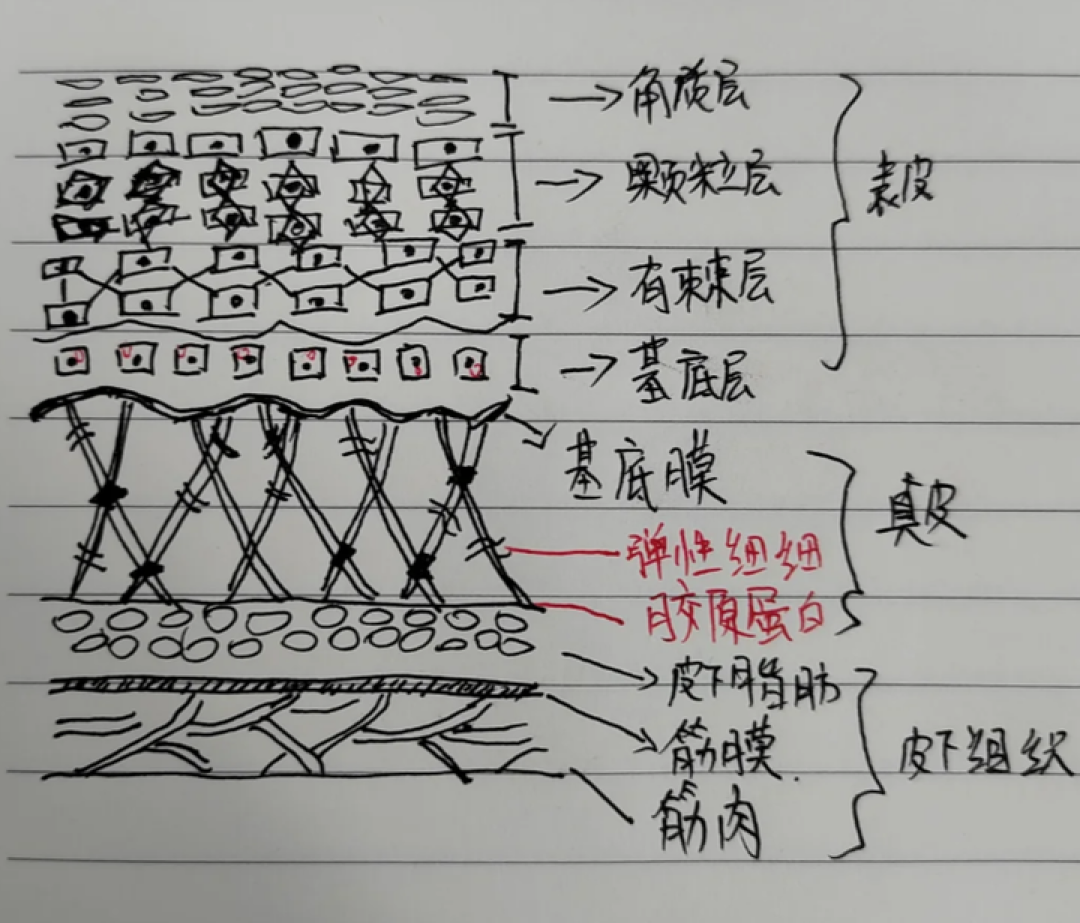 角质层
颗粒层
表皮
有棘层
基底层
基底膜
真皮
弹性细细
胶原蛋白
皮下脂肪
筋膜
皮下组织
筋肉